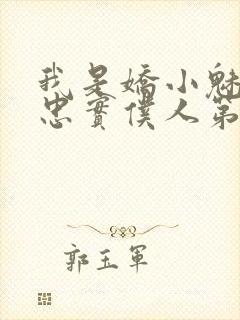 我是嬌小魅
忠實僕人第
郭玉軍